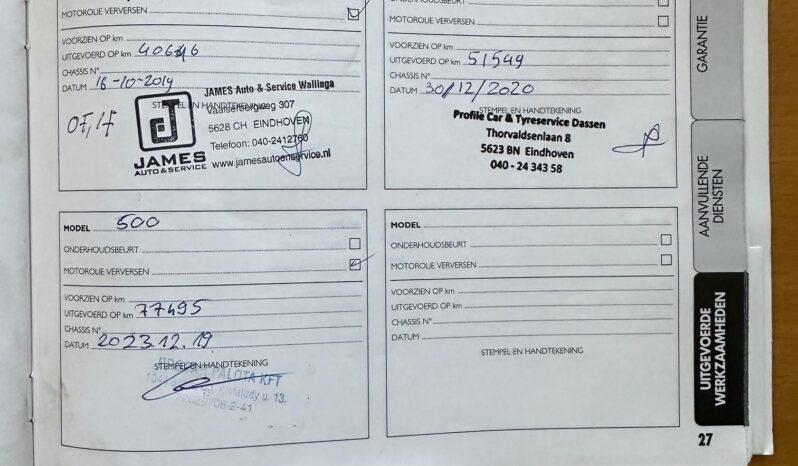 MOTOROLIE VERVERSEN
VOORZIEN OP km
UITGEVOERD OP km 40646
CHASSIS N°
DATUM 16-10-2019
STEMPEL EN HANDTEKENING
JAMES Auto & Service Wallinga
Vaalserbergweg 307
5628 CH EINDHOVEN
Telefoon: 040-2412760
www.jamesautoenservice.nl
J
JAMES
AUTO & SERVICE
ONDERHOUDSBEURT
MOTOROLIE VERVERSEN
VOORZIEN OP km
UITGEVOERD OP km 51549
CHASSIS N°
DATUM 30/12/2020
STEMPEL EN HANDTEKENING
Profile Car & Tyreservice Dassen
Thorvaldsenlaan 8
5623 BN Eindhoven
040 - 24 343 58
MODEL 500
ONDERHOUDSBEURT
MOTOROLIE VERVERSEN
VOORZIEN OP km
UITGEVOERD OP km 77495
CHASSIS N°
DATUM 2023.12.19
STEMPEL EN HANDTEKENING
PALOTA KFT
u. 13.
MODEL
ONDERHOUDSBEURT
MOTOROLIE VERVERSEN
VOORZIEN OP km
UITGEVOERD OP km
CHASSIS N°
DATUM
STEMPEL EN HANDTEKENING
GARANTIE
AANVULLENDE
DIENSTEN
UITGEVOERDE
WERKZAAMHEDEN
27